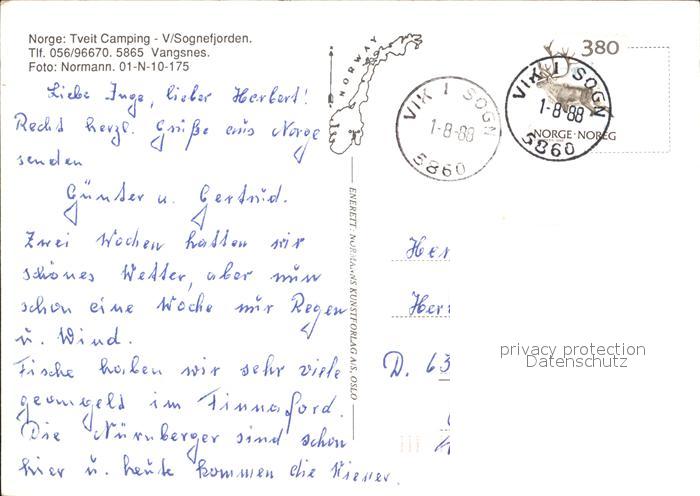 Norge: Tveit Camping - V/Sognefjorden.
Tlf. 056/96670. 5865 Vangsnes.
Foto: Normann. 01-N-10-175
NORWAY
380
NORGE·NOREG
VIK I SOGN
1-8-88
5860
VIK I SOGN
1-8-88
5860
Liebe Inge, lieber Herbert!
Recht herzl. Grüße aus Norge
senden
Günter u. Gertrud.
Zwei Wochen hatten wir
schönes Wetter, aber nun
schon eine Woche nur Regen
u. Wind.
Fische haben wir sehr viele
geangeld im Finnafjord.
Die Nürnberger sind schon
hier u. heute kommen die Wiener.
ENERETT: NORMANNS KUNSTFORLAG A/S, OSLO
Her
Herr
D. 63
privacy protection
Datenschutz